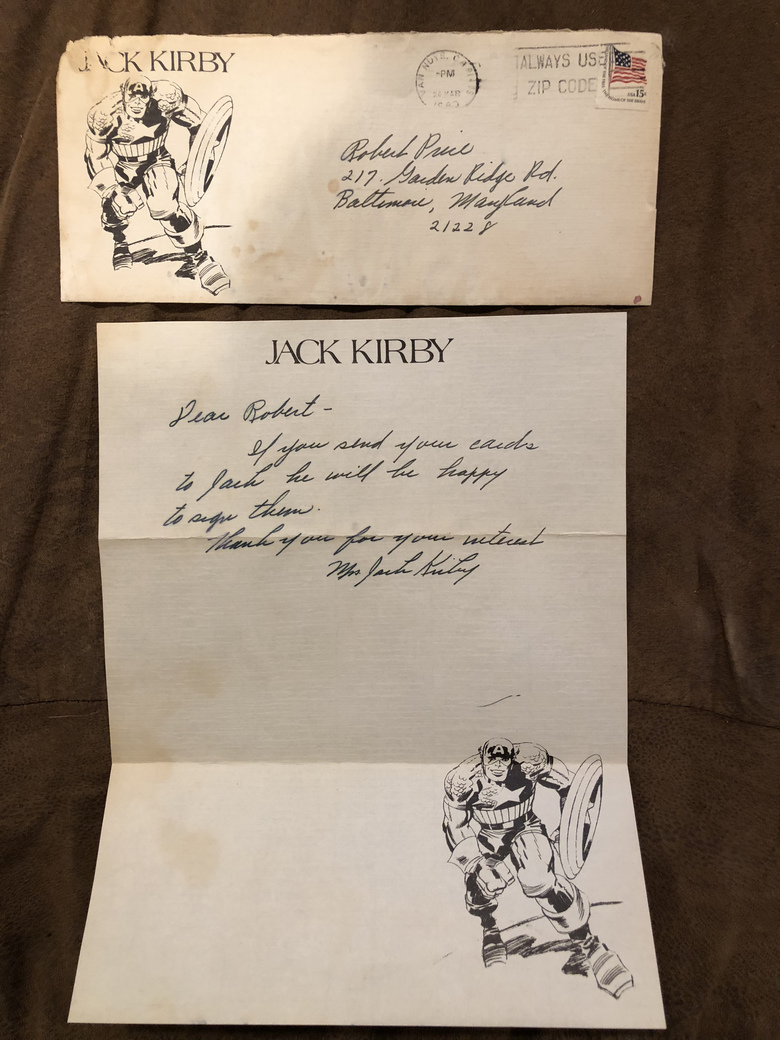 JACK KIRBY
VAN NUYS, CALIF
PM
24 MAR
1980
ALWAYS USE
ZIP CODE
USA 15c
Robert Price
217. Garden Ridge Rd.
Baltimore, Maryland
21228
JACK KIRBY
Dear Robert -
If you send your cards
to Jack he will be happy
to sign them.
Thank you for your interest
Mrs Jack Kirby